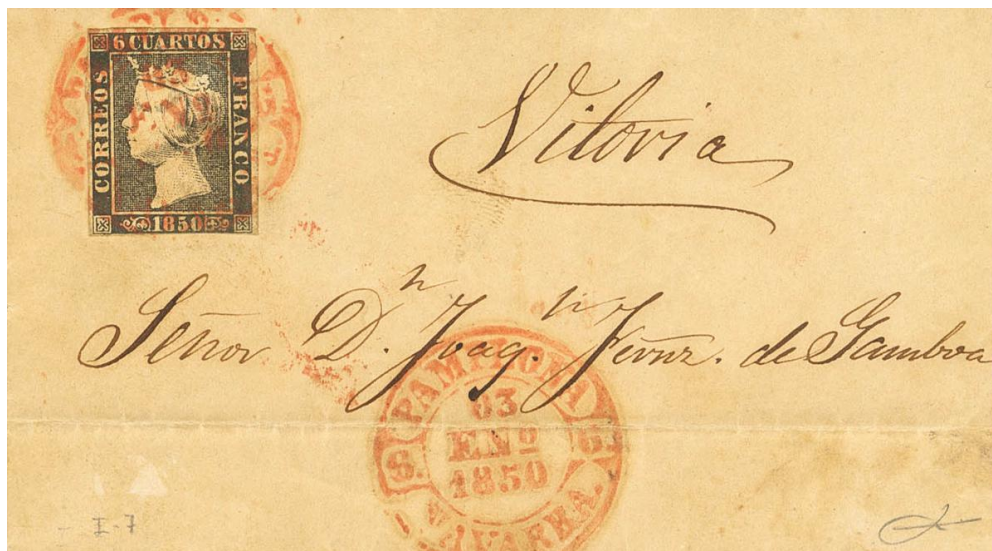 6 CUARTOS
CORREOS
FRANCO
1850
Vitoria
Señor Dn. Joaqn. Fernz. de Gamboa
PAMPLONA
03
ENO
1850
NAVARRA.
I-7